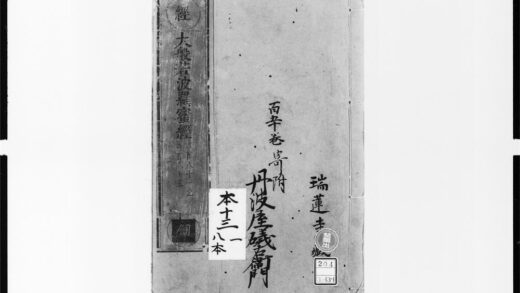 瑞蓮寺
百卆巻寄附
丹波屋磯右衛門
經
大般若波羅蜜經
本十三一
八本
204